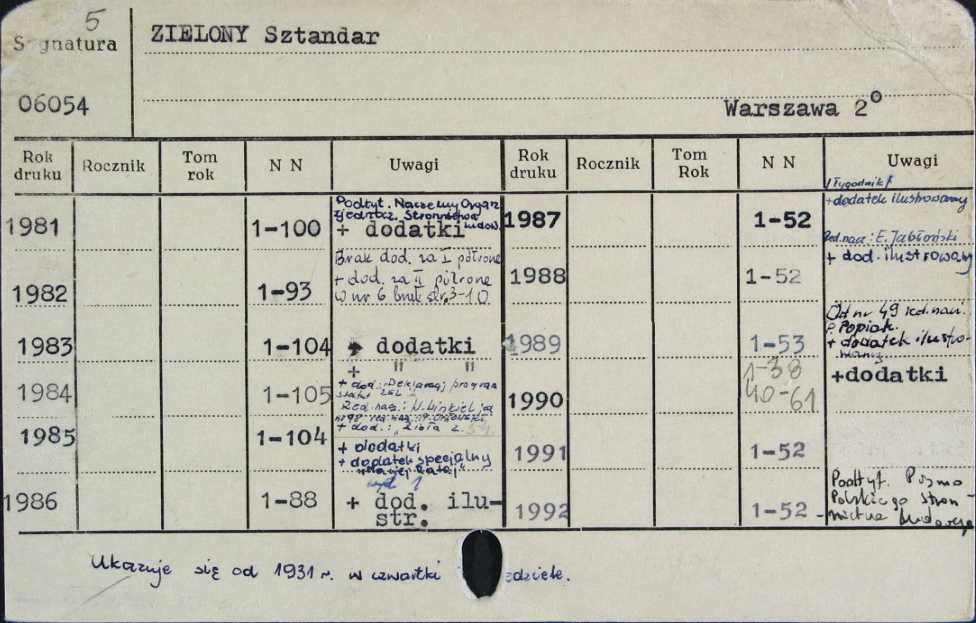 5
Sygnatura
ZIELONY Sztandar
06054
Warszawa 2°
Rok druku Rocznik Tom rok N N Uwagi Rok druku Rocznik Tom Rok N N Uwagi
1981 1-100 Podtyt. Naczelny Organ
Zjednocz. Stronnictwa
Ludow.
+ dodatki
1982 1-93 Brak dod. za I półrocze
+ dod. za II półrocze
W nr 6 brak str. 3-10
1983 1-104 + dodatki
1984 1-105 + " "
+ dod.: Deklaracj program
Red. nacz.:
+ dod.: "Zioła z
1985 1-104 + dodatki
+ dodatek specjalny
"Maciej Rataj"
1986 1-88 + dod. ilu-
str.
1987 1-52 /Tygodnik/
+ dodatek ilustrowany
Red. nacz: E. Jabłoński
1988 1-52 + dod. ilustrowany
1989 1-53 Od nr 49 red. nacz.
Popiak
+ dodatek ilustro-
wany
1990 1-38
40-61 +dodatki
1991 1-52
1992 1-52 Podtyt. Pismo
Polskiego Stron-
nictwa Ludowego
Ukazuje się od 1931 r. w czwartki edziele.